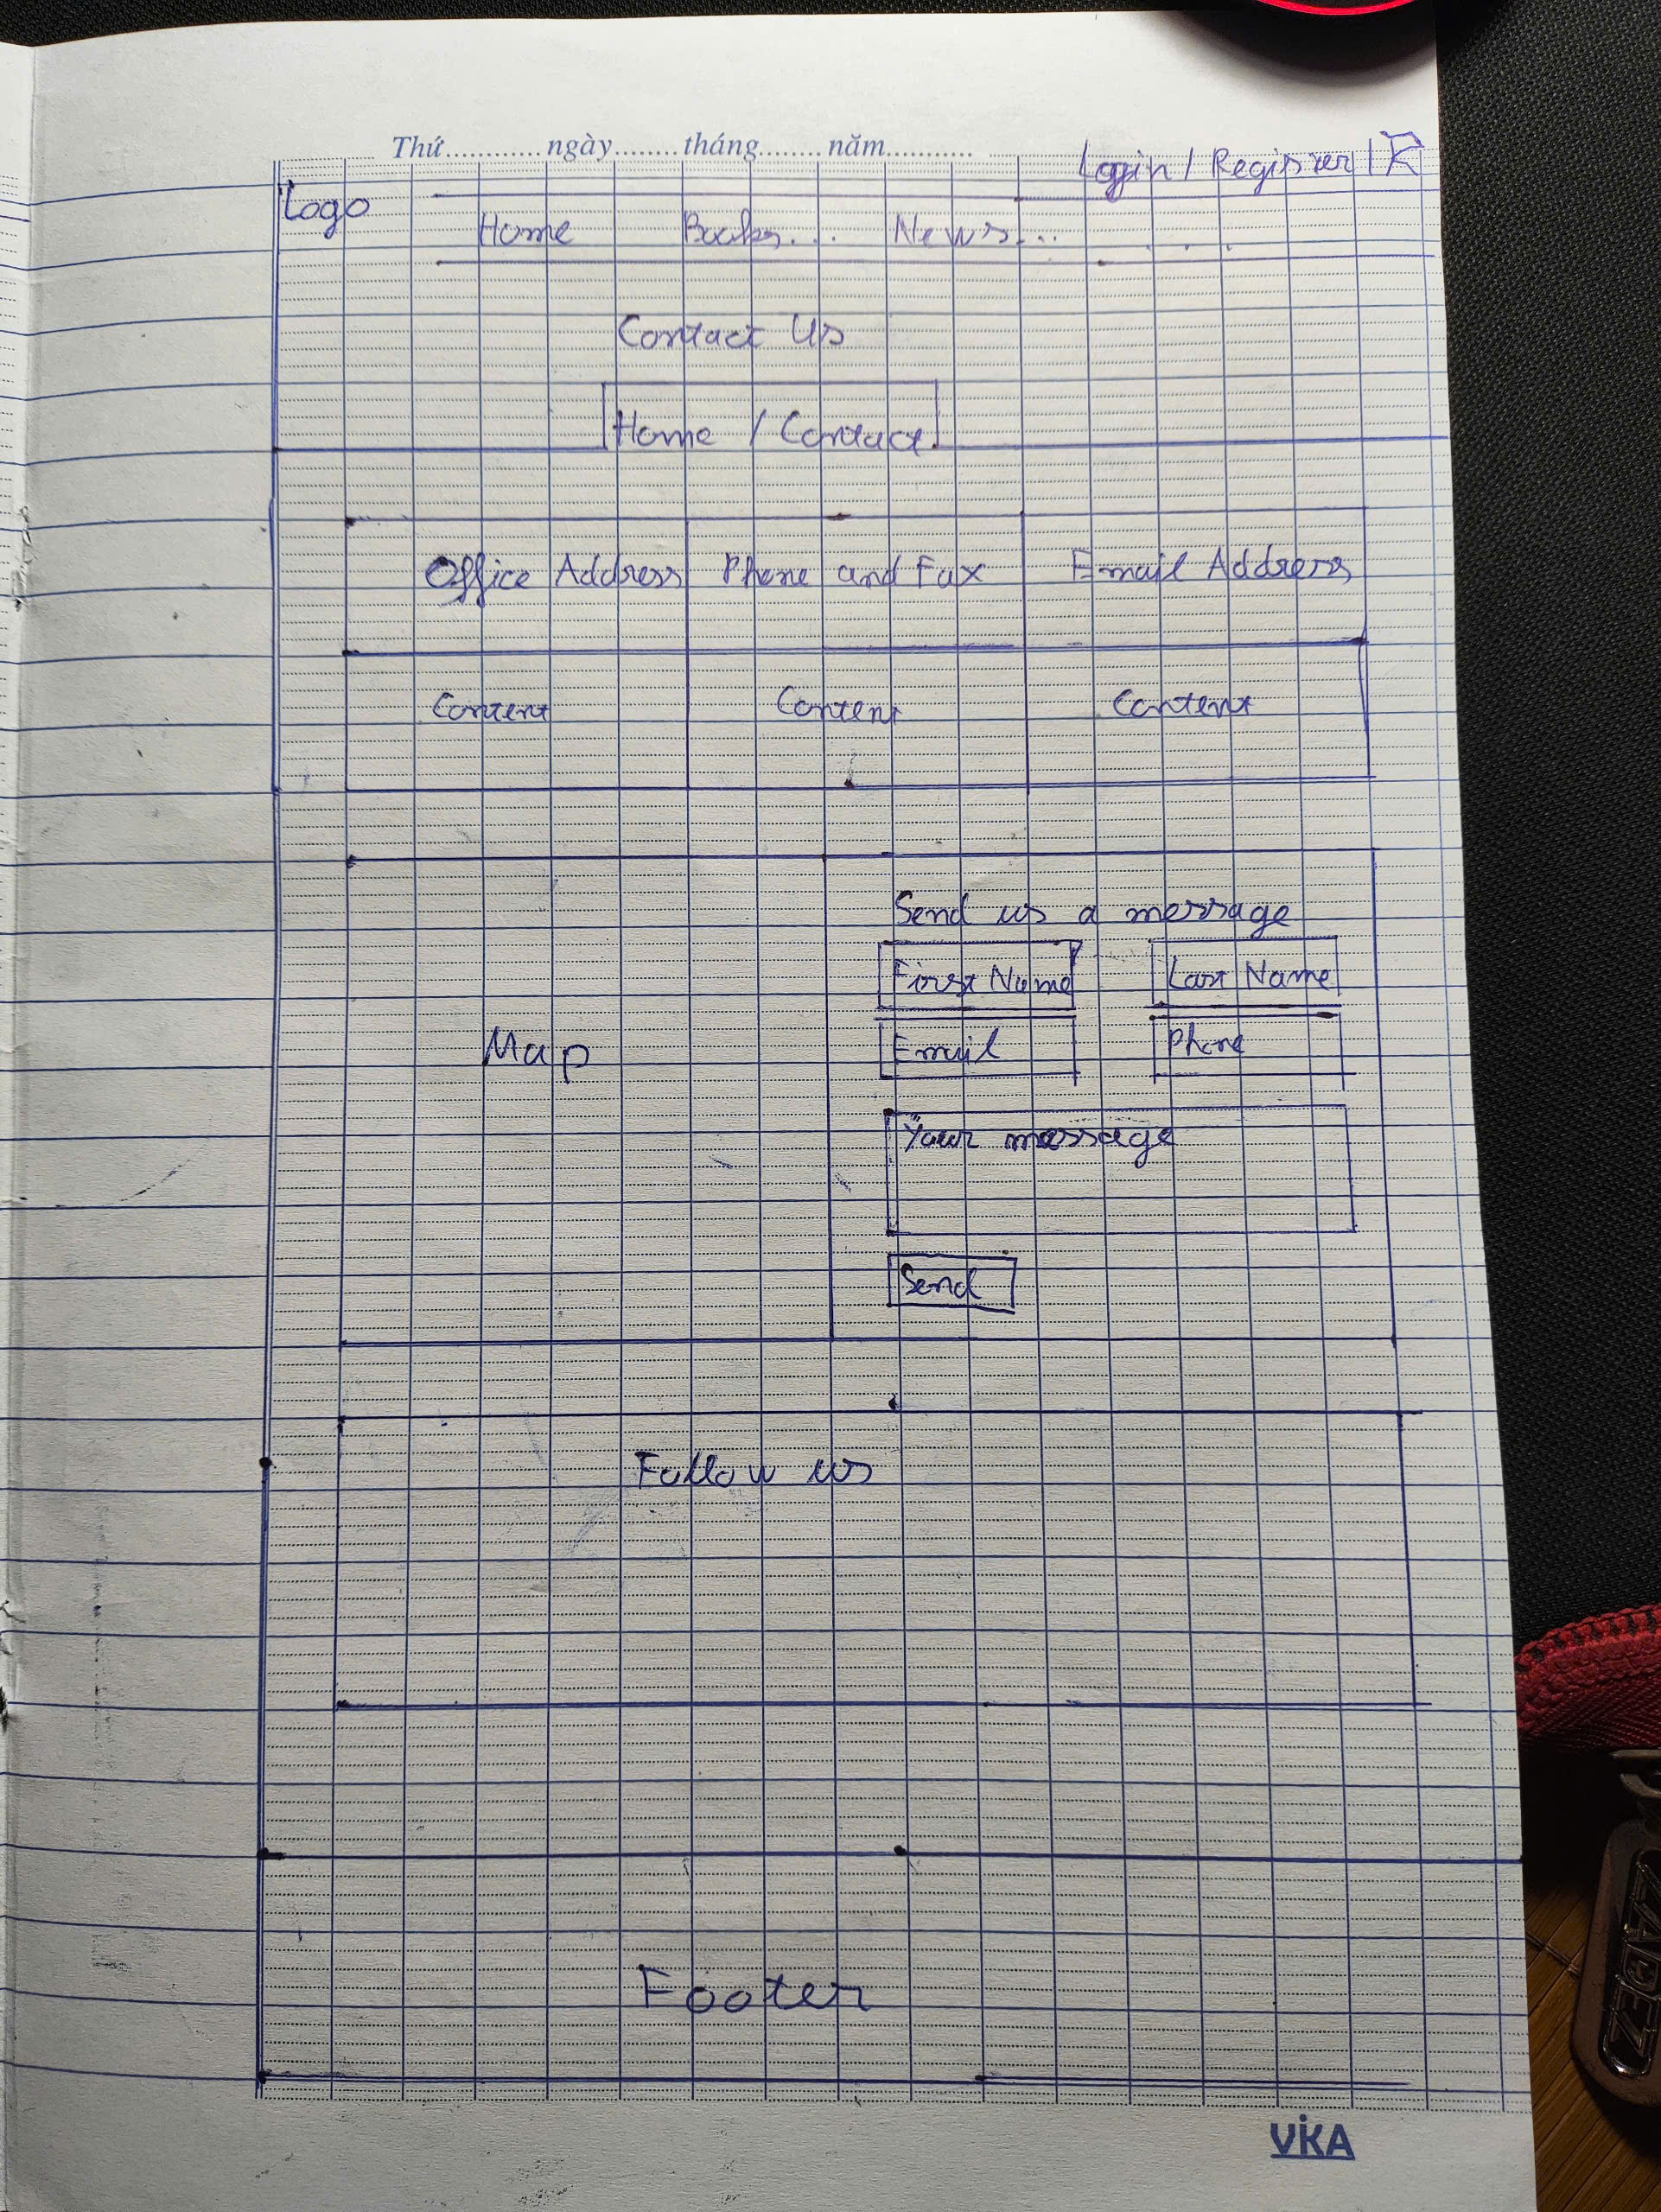 Thứ............ngày........tháng........năm...........
Login / Register /
Logo
Home Books... News... ...
Contact Us
Home / Contact
Office Address Phone and Fax Email Address
Content Content Content
Send us a message
First Name Last Name
Map
Email Phone
Your message
Send
Follow us
Footer
VIKA
ZADEZ